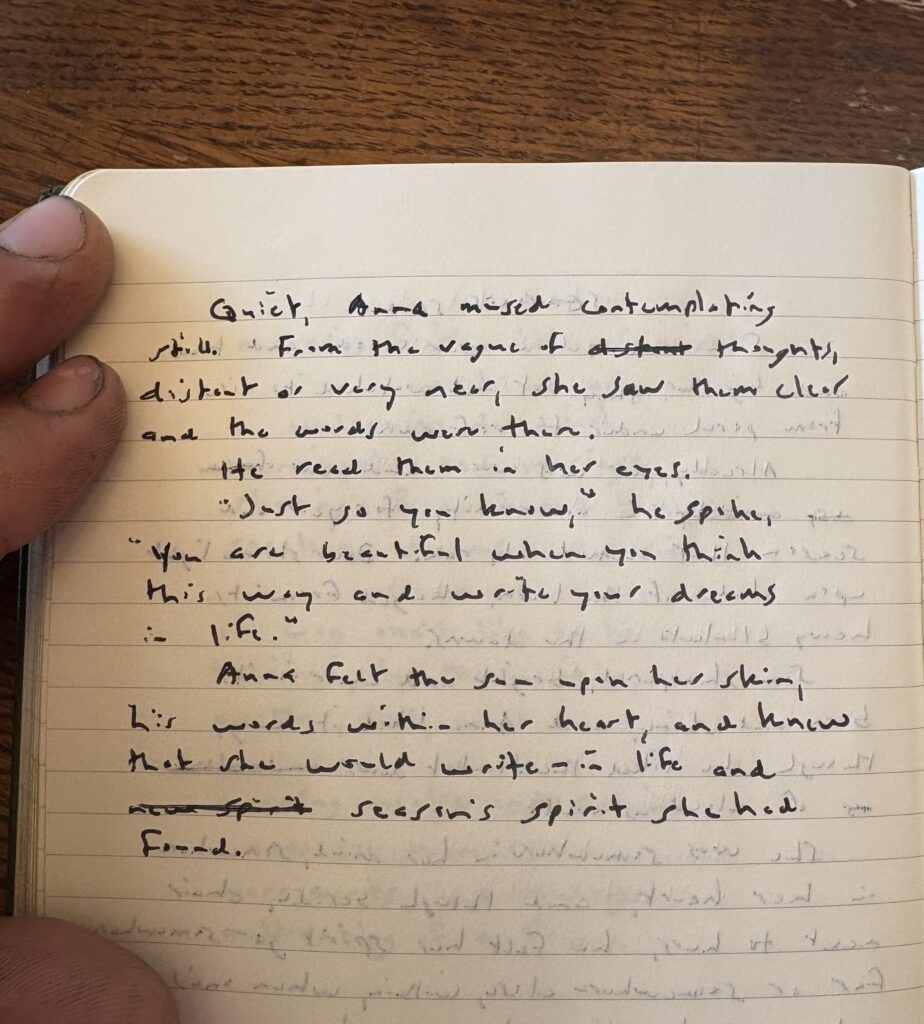 Quiet, Anna mused contemplating
still. From the vague of distant thoughts,
distant or very near, she saw them clear
and the words were there.
He read them in her eyes.
"Just so you know," he spoke,
"You are beautiful when you think
this way and write your dreams
in life."
Anna felt the sun upon her skin,
his words within her heart, and knew
that she would write – in life and
new spirit season's spirit she had
found.